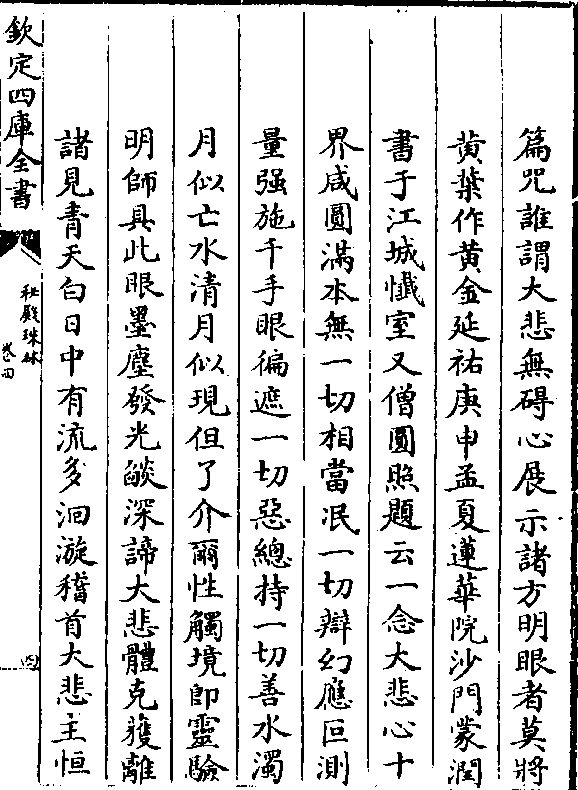 篇咒誰謂大悲無碍心展示諸方明眼者莫將
黄葉作黄金延祐庚申孟夏蓮華院沙門蒙潤
書于江城懺室又僧圓照題云一念大悲心十
界咸圓滿本無一切相當泯一切辯幻應叵測
量强施千手眼徧遮一切惡總持一切善水濁
月似亡水清月似現但了介爾性觸境即靈驗
明師具此眼墨塵發光燄深諦大悲體克獲離
諸見青天白日中有流多洄漩稽首大悲主恒
欽定四庫全書
秘殿珠林
卷四
四